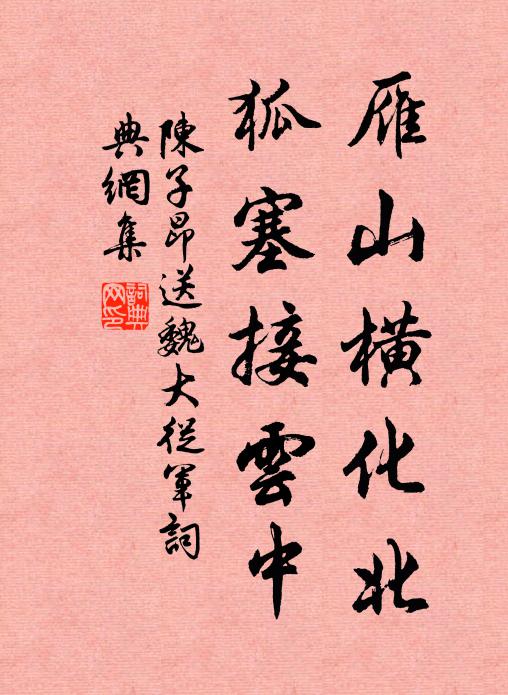 雁山橫化北
狐塞接雲中
陳子昂送魏大從軍詞
典網集
詞典网印